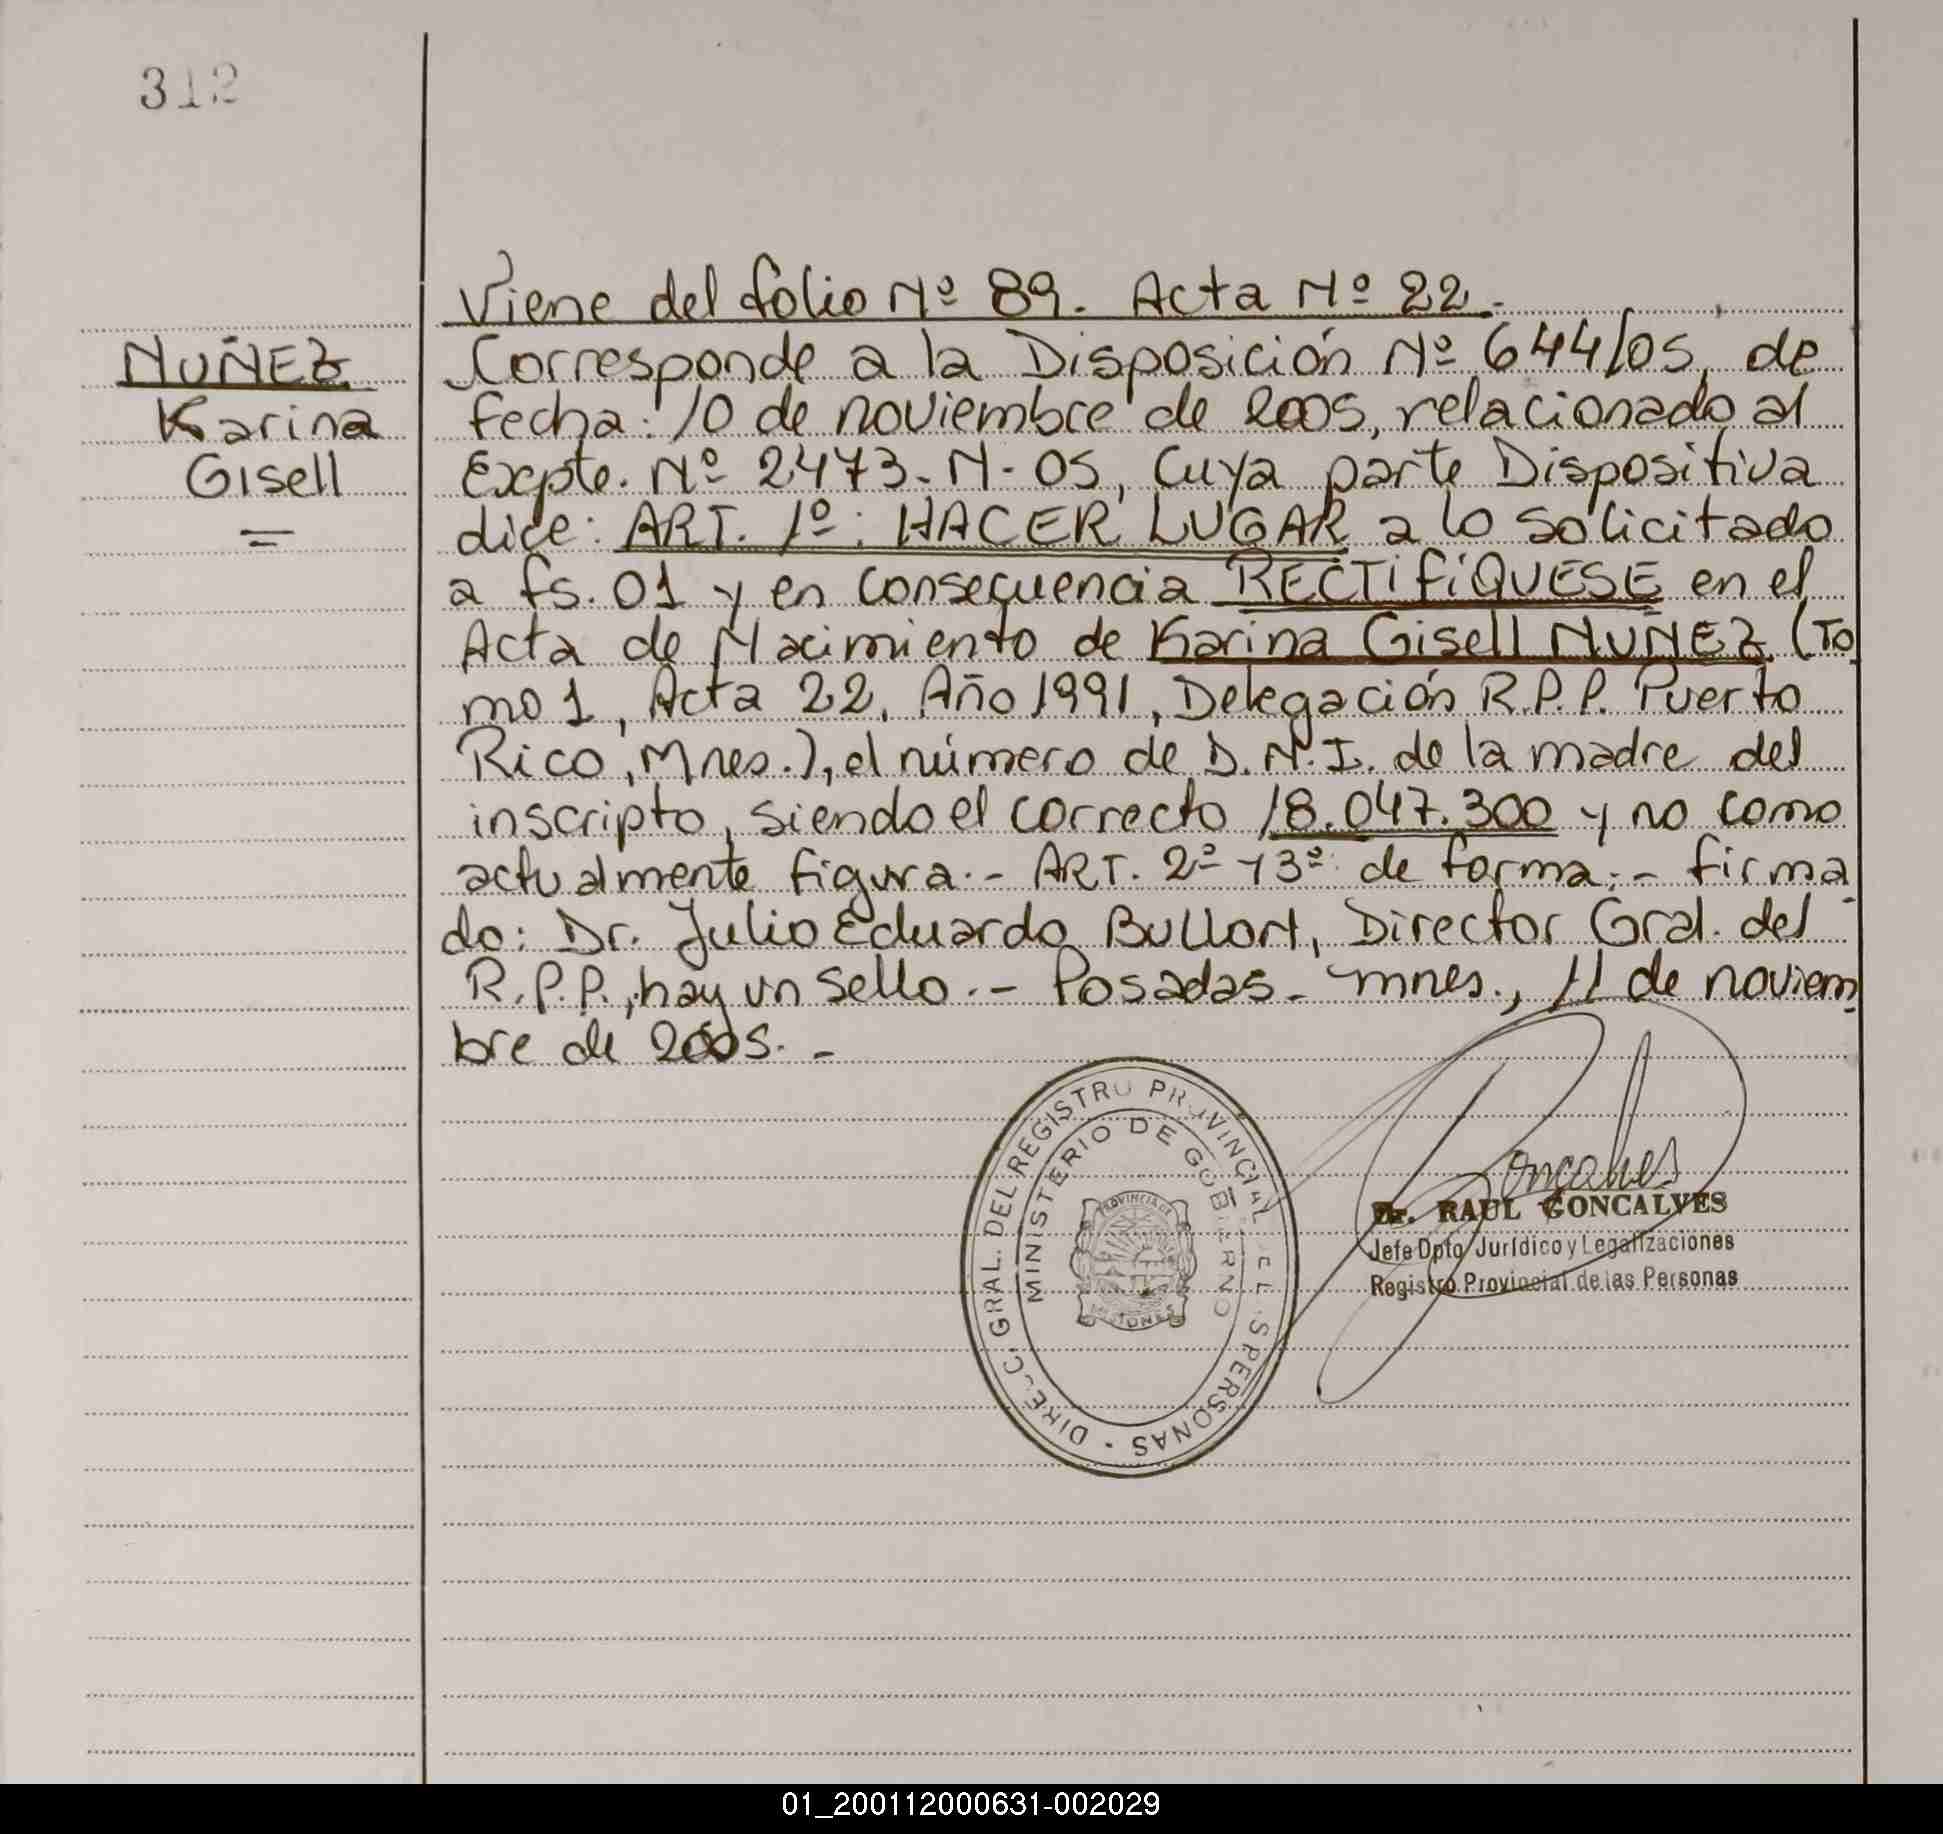 312
NUÑEZ
Karina
Gisell
=
Viene del folio Nº 89. Acta Nº 22.
Corresponde a la Disposición Nº 644/05, de
fecha: 10 de noviembre de 2005, relacionado al
Expte. Nº 2473-N-05, Cuya parte Dispositiva
dice: ART. 1º: HACER LUGAR a lo solicitado
a fs. 01 y en consecuencia RECTIFÍQUESE en el
Acta de Nacimiento de Karina Gisell NUÑEZ (To
mo 1, Acta 22, Año 1991, Delegación R.P.P. Puerto
Rico, Mnes.), el número de D.N.I. de la madre del
inscripto, siendo el correcto 18.047.300 y no como
actualmente figura.- ART. 2º y 3º: de forma.- firma
do: Dr. Julio Eduardo Bullon, Director Gral. del
R.P.P., hay un sello.- Posadas - mnes., 11 de noviem
bre de 2005.-
DIRECC. GRAL. DEL REGISTRO PROVINCIAL DE LAS PERSONAS
MINISTERIO DE GOBIERNO
PROVINCIA DE
MISIONES
Goncalves
Dr. RAUL GONCALVES
Jefe Dpto Jurídico y Legalizaciones
Registro Provincial de las Personas
01_200112000631-002029